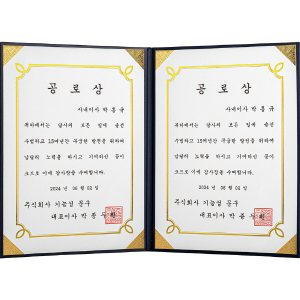 공로상
사내이사 박 홍 규
귀하께서는 당사의 모든 임대 총괄
수행하고 15여년간 꾸준한 발전을 위하여
남다른 노력을 하시고 기여하신 공이
크므로 이에 감사장을 수여합니다.
2024 년 06 월 02 일
주식회사 기능성 문구
대표이사 박 종
공로상
사내이사 박 홍 규
귀하께서는 당사의 모든 임대 총괄
수행하고 15여년간 꾸준한 발전을 위하여
남다른 노력을 하시고 기여하신 공이
크므로 이에 감사장을 수여합니다.
2024 년 06 월 02 일
주식회사 기능성 문구
대표이사 박 종